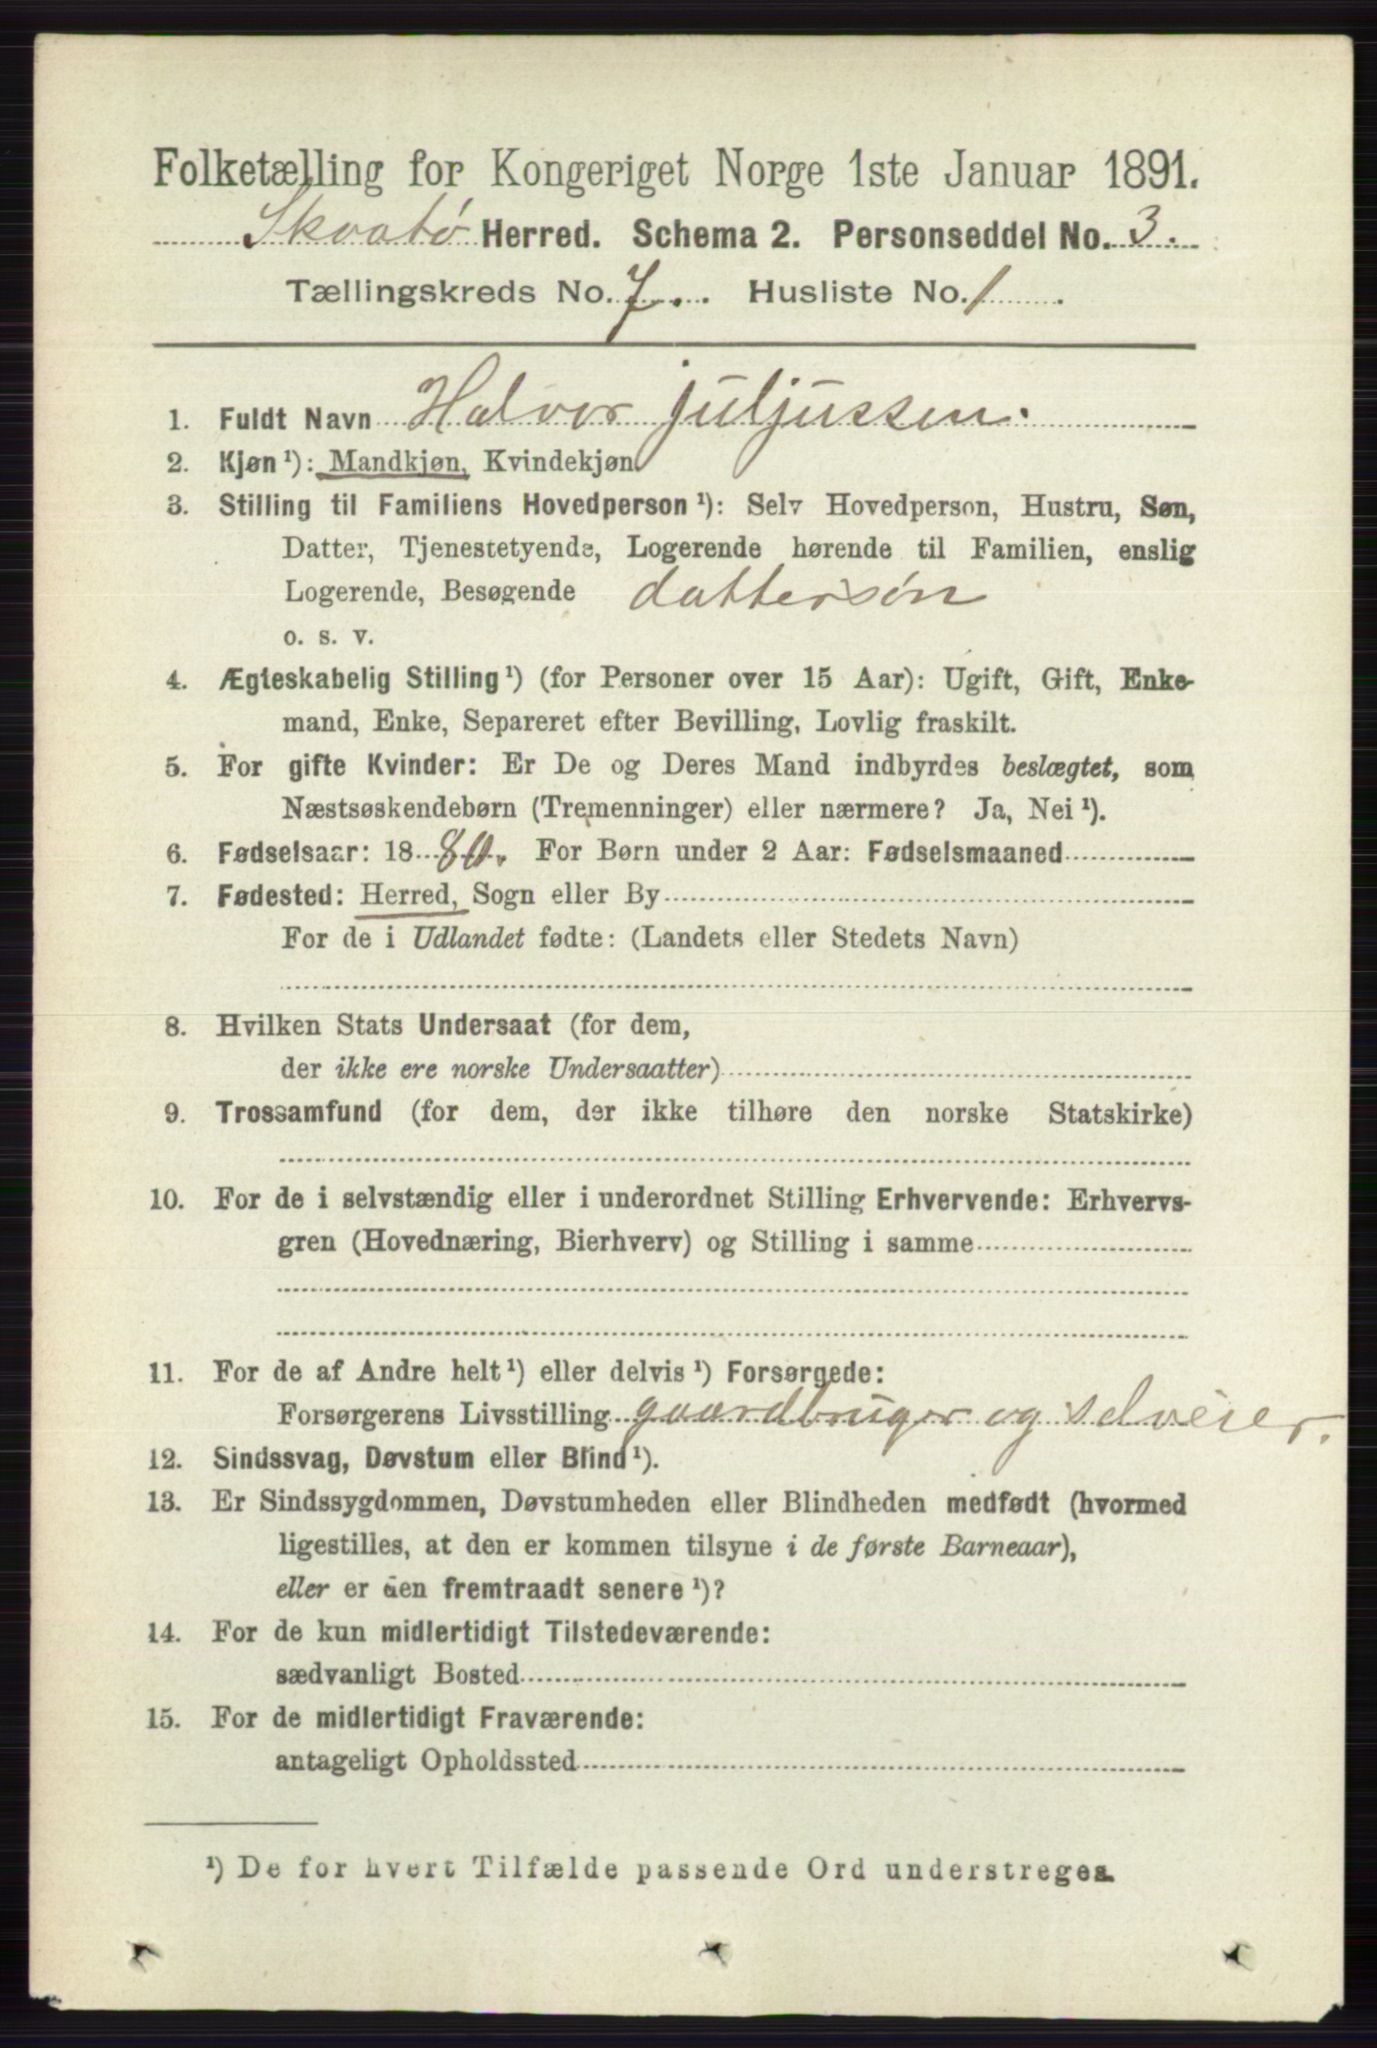 Folketælling for Kongeriget Norge 1ste Januar 1891.
Skaatø Herred. Schema 2. Personseddel No. 3.
Tællingskreds No. 7. Husliste No. 1.
1. Fuldt Navn Halvor juljussen.
2. Kjøn ¹): Mandkjøn, Kvindekjøn
3. Stilling til Familiens Hovedperson ¹): Selv Hovedperson, Hustru, Søn,
Datter, Tjenestetyende, Logerende hørende til Familien, enslig
Logerende, Besøgende dattersøn
o. s. v.
4. Ægteskabelig Stilling ¹) (for Personer over 15 Aar): Ugift, Gift, Enke-
mand, Enke, Separeret efter Bevilling, Lovlig fraskilt.
5. For gifte Kvinder: Er De og Deres Mand indbyrdes beslægtet, som
Næstsøskendebørn (Tremenninger) eller nærmere? Ja, Nei ¹).
6. Fødselsaar: 18 80. For Børn under 2 Aar: Fødselsmaaned
7. Fødested: Herred, Sogn eller By
For de i Udlandet fødte: (Landets eller Stedets Navn)
8. Hvilken Stats Undersaat (for dem,
der ikke ere norske Undersaatter)
9. Trossamfund (for dem, der ikke tilhøre den norske Statskirke)
10. For de i selvstændig eller i underordnet Stilling Erhvervende: Erhvervs-
gren (Hovednæring, Bierhverv) og Stilling i samme
11. For de af Andre helt ¹) eller delvis ¹) Forsørgede:
Forsørgerens Livsstilling gaardbruger og selveier.
12. Sindssvag, Døvstum eller Blind ¹).
13. Er Sindssygdommen, Døvstumheden eller Blindheden medfødt (hvormed
ligestilles, at den er kommen tilsyne i de første Barneaar),
eller er den fremtraadt senere ¹)?
14. For de kun midlertidigt Tilstedeværende:
sædvanligt Bosted
15. For de midlertidigt Fraværende:
antageligt Opholdssted
¹) De for hvert Tilfælde passende Ord understreges.